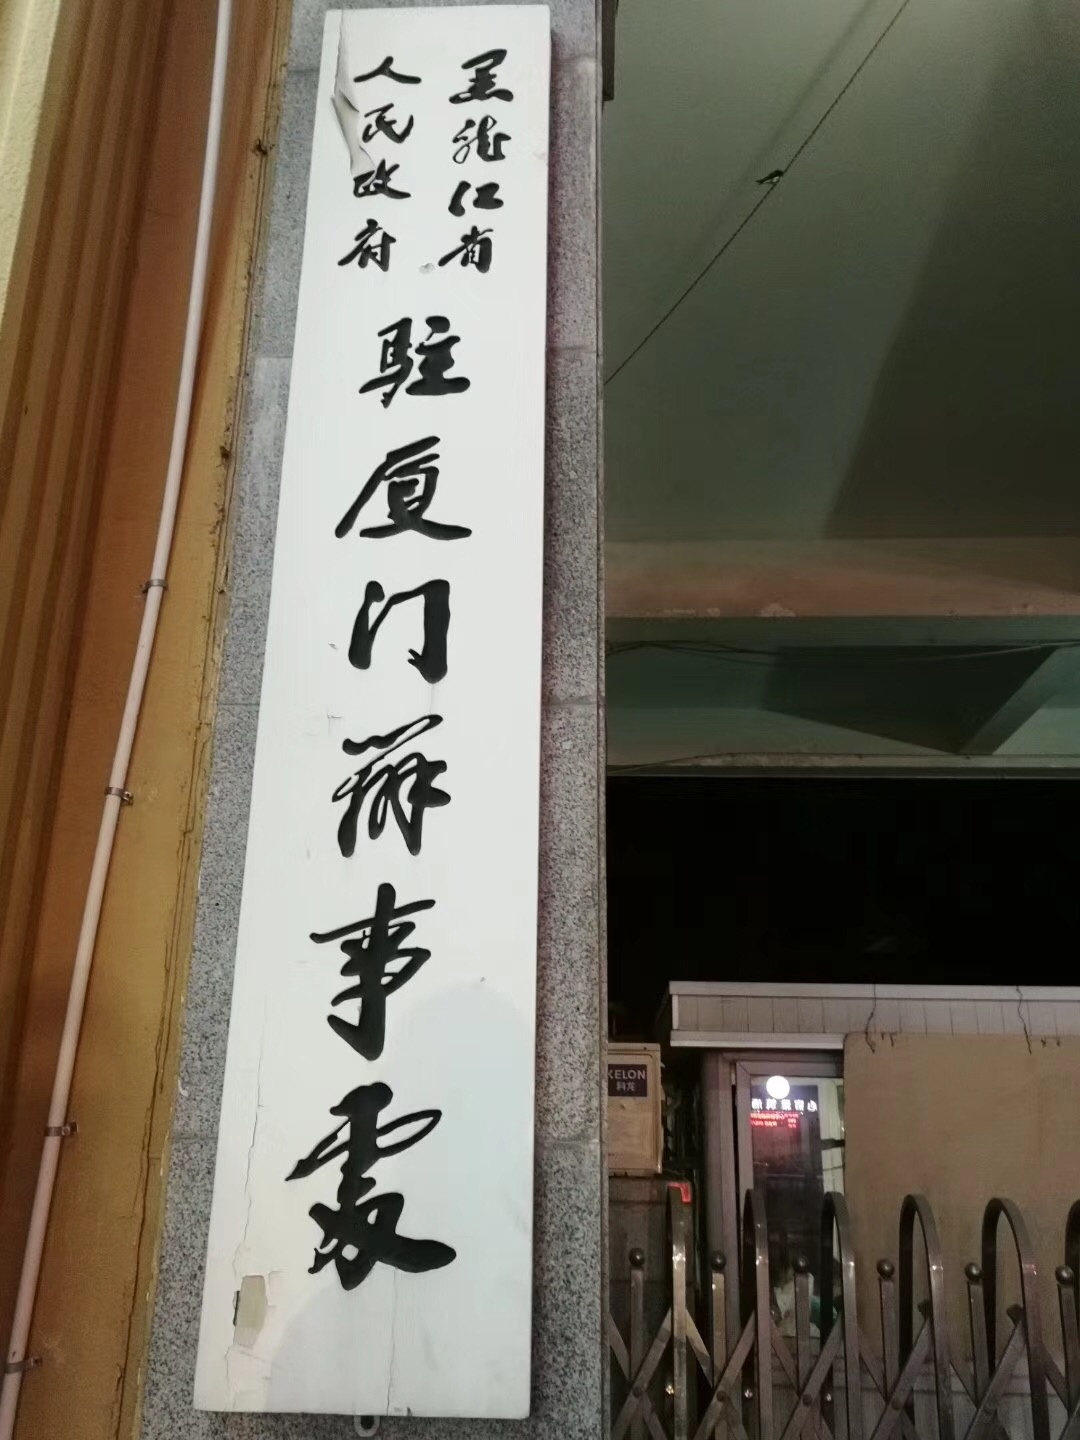 黑龙江省
人民政府
驻厦门辦事處
KELON
科龙